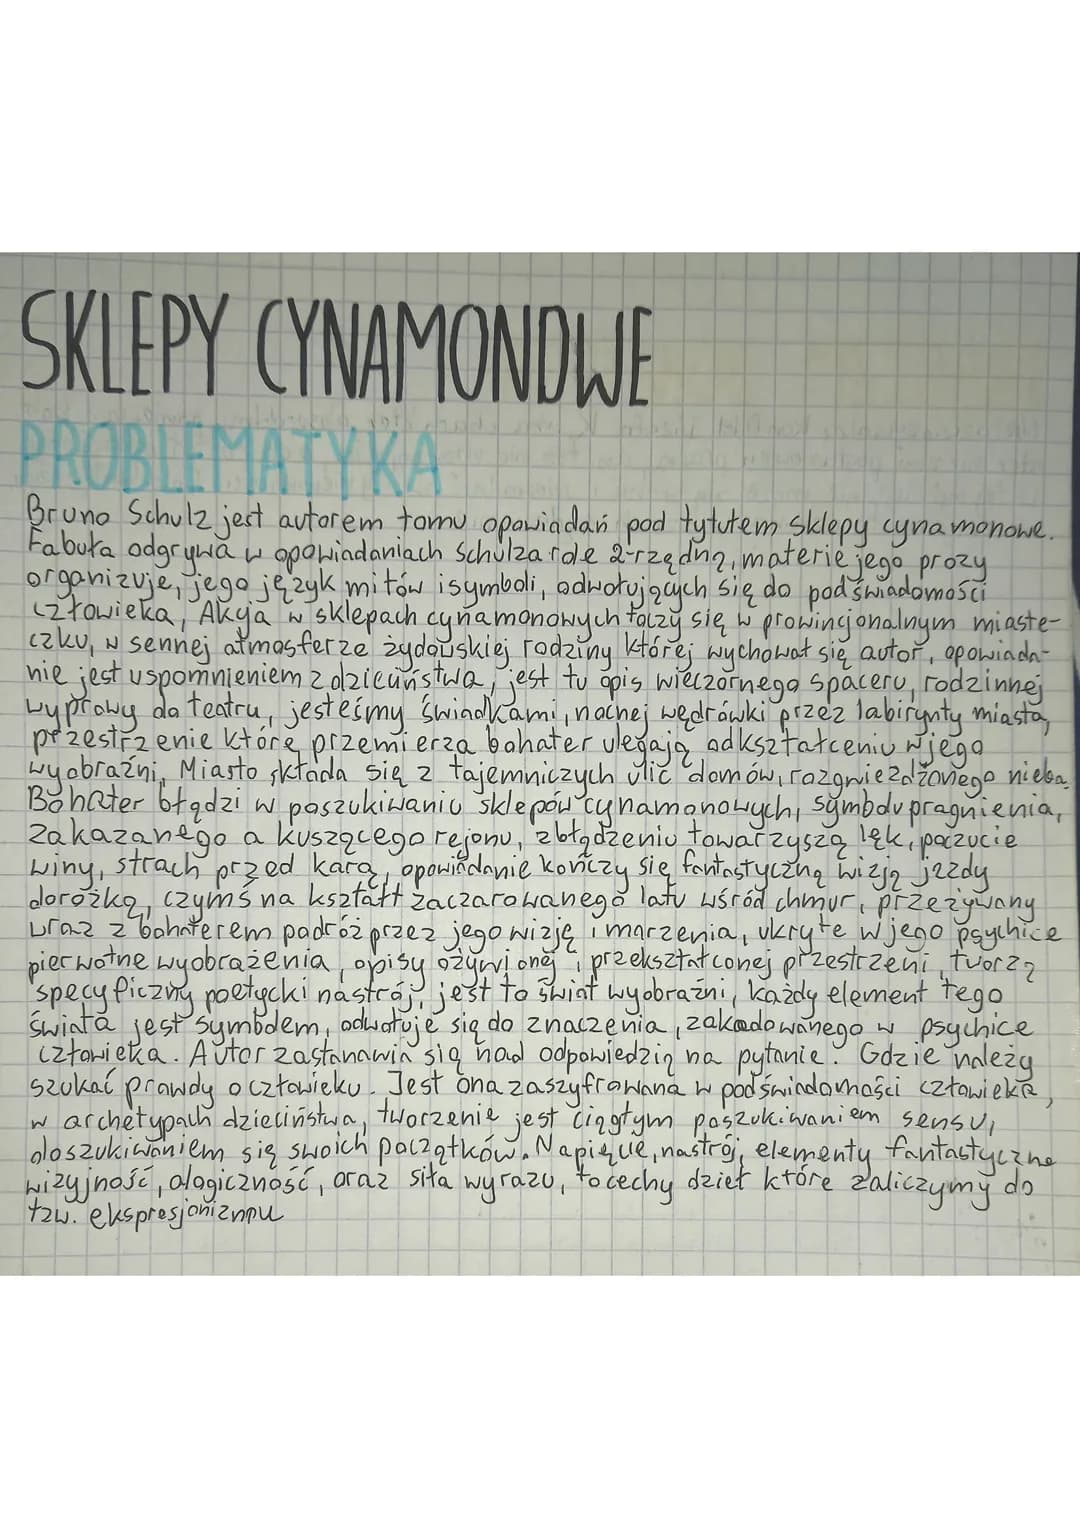 SKLEPY CYNAMONOWE
PROBLEMATYKA
Bruno Schulz jest autorem tomu opowiadań pod tytułem Sklepy cynamonowe.
Fabuła odgrywa w opowiadaniach Schulza role 2-rzędną, materie jego prozy
organizuje, jego język mitów i symboli, odwołujących się do podświadomości
człowieka, Akcja w sklepach cynamonowych toczy się w prowincjonalnym miaste-
czku, w sennej atmosferze żydowskiej rodziny której wychował się autor, opowiada-
nie jest uspomnieniem z dzieciństwa, jest tu opis wieczornego spaceru, rodzinnej
wyprawy do teatru, jesteśmy świadkami, nocnej wędrówki przez labirynty miasta,
przestrzenie które przemierza bohater ulegają odkształceniu w jego
wyobraźni, Miasto składa się z tajemniczych ulic domów, rozgwieżdżonego nieba
Bohater błądzi w poszukiwaniu sklepów cynamonowych, symbolu pragnienia,
zakazanego a kuszącego rejonu, zbłądzeniu towarzyszą lęk, poczucie
winy, strach przed karą, opowiadanie kończy się fantastyczną wizją jazdy
dorożką, czymś na kształt zaczarowanego latu wśród chmur, przeżywany
wraz z bohaterem podróż przez jego wizję i marzenia, ukryte w jego psychice
pierwotne wyobrażenia, opisy ożywionej i przekształconej przestrzeni, tworzą
specyficzny poetycki nastrój, jest to świat wyobraźni, każdy element tego
świata jest symbolem, odwołuje się do znaczenia, zakodowanego w psychice
człowieka. Autor zastanawia się nad odpowiedzią na pytanie. Gdzie należy
szukać prawdy o człowieku. Jest ona zaszyfrowana w podświadomości człowieka,
w archetypach dzieciństwa, tworzenie jest ciągłym poszukiwaniem sensu,
doszukiwaniem się swoich początków. Napięcie, nastrój, elementy fantastyczne
wizyjność, alogiczność, oraz siła wyrazu, to cechy dzieł które zaliczymy do
tzw. ekspresjonizmu